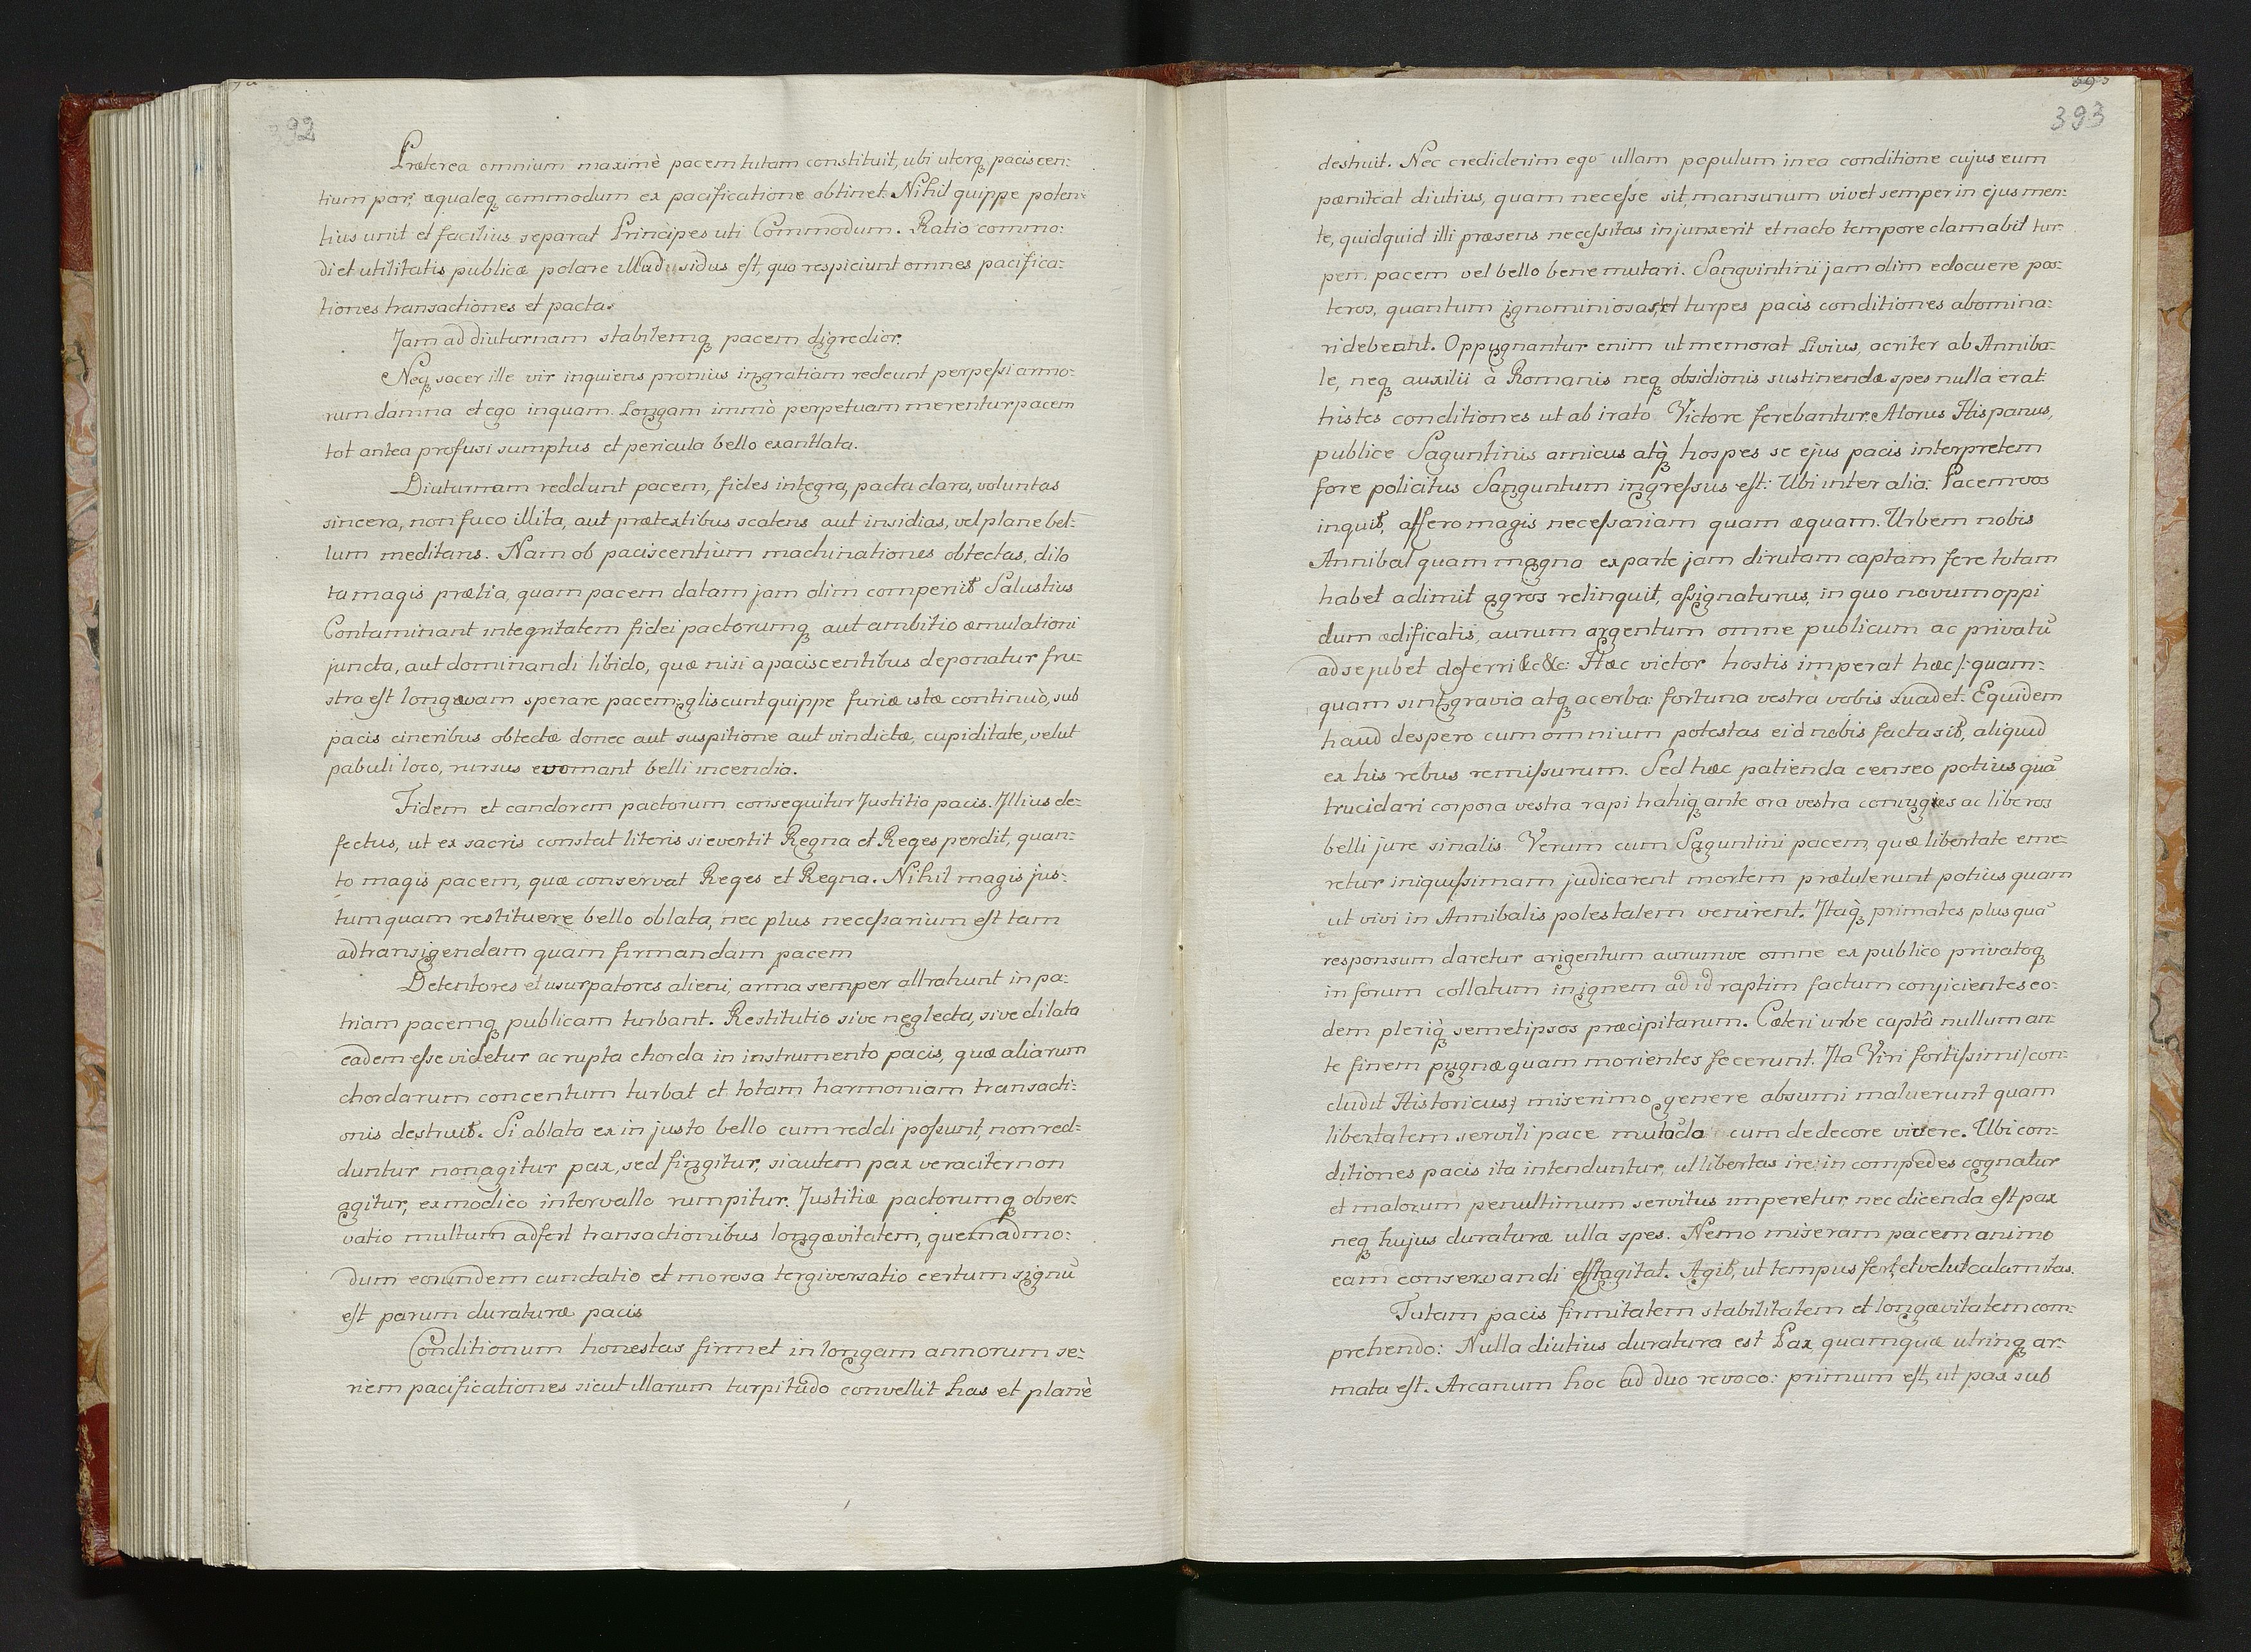 392
Præterea omnium maximè pacem tutam constituit, ubi uterq paciscen:
tium par, æqualeq commodum ex pacificatione obtinet. Nihil quippe poten:
tius unit et facilius separat Principes uti Commodum. Ratio commo:
di et utilitatis publicæ polare illud sidus est, quo respiciunt omnes pacifica:
tiones transactiones et pacta.
Jam ad diuturnam stabilemq pacem digredior.
Neq sacer ille vir inquiens pronius in gratiam redeunt perpessi armo:
rum damna et ego inquam. Longam immò perpetuam merentur pacem
tot antea profusi sumptus et pericula bello exantlata.
Diuturnam reddunt pacem, fides integra, pacta clara, voluntas
sincera, non fuco illita, aut prætextibus scatens aut insidias, vel plane bel:
lum meditans. Nam ob paciscentium machinationes obtectas, dila
ta magis prælia, quam pacem datam jam olim comperiit Salustius
Contaminant integritatem fidei pactorumq aut ambitio æmulationi
juncta, aut dominandi libido, quæ nisi a paciscentibus deponatur fru:
stra est longævam sperare pacem; gliscunt quippe furiæ istæ continuò, sub
pacis cineribus obtectæ donec aut suspitione aut vindictæ, cupiditate, velut
pabuli loco, rursus evomant belli incendia.
Fidem et candorem pactorum consequitur Justitia pacis. Illius de:
fectus, ut ex sacris constat literis si evertit Regna et Reges perdit, quan:
to magis pacem, quæ conservat Reges et Regna. Nihil magis jus:
tum quam restituere bello oblata, nec plus necessarium est tam
ad transigendam quam firmandam pacem
Detentores et usurpatores alieni, arma semper attrahunt in pa:
triam pacemq publicam turbant. Restitutio sive neglecta, sive dilata
eadem esse videtur ac rupta chorda in instrumento pacis, quæ aliarum
chordarum concentum turbat et totam harmoniam transacti:
onis destruit. Si ablata ex in justo bello cum reddi possunt, non red:
duntur non agitur pax, sed fingitur, si autem pax veraciter non
agitur, ex modico intervallo rumpitur. Justitiæ pactorumq obser:
vatio multum adfert transactionibus longævitatem, quemadmo:
dum eorundem cunctatio et morosa tergiversatio certum signũ
est parum duraturæ pacis
Conditionum honestas firmet in longam annorum se:
riem pacificationes sicut illarum turpitudo convellit has et planè
393
destruit. Nec crediderim ego ullam populum in ea conditione cujus eum
pæniteat diutius, quam necesse sit, mansurum vivet semper in ejus men:
te, quidquid illi præsens necessitas injunxerit et nacto tempore clamabit tur:
pem pacem vel bello bene mutari. Sanguintini jam olim edocuere pos:
teros, quantum ignominiosas et turpes pacis conditiones abomina:
ri debeant. Oppugnantur enim ut memorat Livius, acriter ab Anniba:
le, neq auxilii à Romanis neq obsidionis sustinendæ spes nulla erat.
tristes conditiones ut ab irato Victore ferebantur. Alorus Hispanus,
publice Saguntinis amicus atq hospes se ejus pacis interpretem
fore policitus Sanguntum ingressus est: Ubi inter alia: Pacem vos
inquit, affero magis necessariam quam æquam. Urbem nobis
Annibal quam magna ex parte jam dirutam captam fere totam
habet adimit agros relinquit, assignaturus, in quo novum oppi
dum ædificatis, aurum argentum omne publicum ac privatũ
ad se jubet deferri &c &c: Hæc victor hostis imperat hæc/: quam:
quam sint gravia atq acerba: fortuna vestra vobis suadet. Equidem
haud despero cum omnium potestas ei à nobis facta sit, aliquid
ex his rebus remissurum. Sed hæc patienda censeo potius quã
trucidari corpora vestra rapi trahiq ante ora vestra coniuges ac liberos
belli jure sinalis. Verum cum Saguntini pacem, quæ libertate eme:
retur iniquissimam judicarent mortem prætulerunt potius quam
ut vivi in Annibalis potestatem venirent. Itaq primates plus quã
responsum daretur arigentum aurumve omne ex publico privatoq
in forum collatum in ignem ad id raptim factum conjicientes eo:
dem pleriq semetipsos præcipitarum. Cæteri urbe captâ nullum an:
te finem pugnæ quam morientes fecerunt. Ita Viri fortissimi/ con:
cludit Historicus/ miserimo genere absumi maluerunt quam
libertatem servili pace mutada cum dedecore vivere. Ubi con:
ditiones pacis ita intenduntur, ut libertas ire in compedes cognatur
et malorum penultimum servitus imperetur, nec dicenda est pax
neq hujus duraturæ ulla spes. Nemo miseram pacem animo
eam conservandi efflagitat. Agit, ut tempus fert, et velut calamitas.
Tutam pacis firmitatem stabilitatem et longævitatem com:
prehendo: Nulla diutius duratura est Pax quam quæ utrinq ar:
mata est. Arcanum hoc ad duo revoco: primum est, ut pax sub